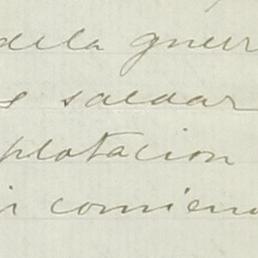 dela guerr
s saldar
plotacion
ir comienz